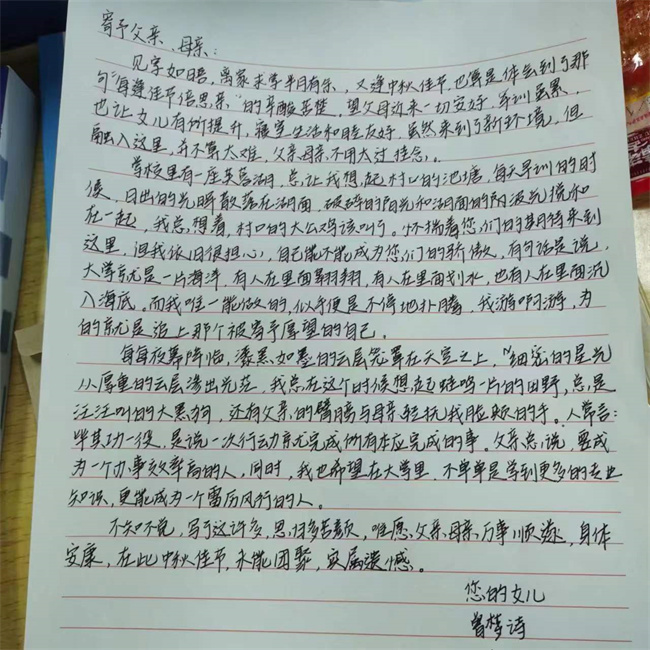 寄予父亲、母亲:
见字如晤,离家求学半月有余,又逢中秋佳节,也算是体会到了那
句“每逢佳节倍思亲”的辛酸苦楚,望父母近来一切安好,军训虽累,
也让女儿有所提升,寝室生活和睦友好,虽然来到了新环境,但
融入这里,并不算太难,父亲母亲,不用太过挂念。
学校里有一座芙蓉湖,总让我想起村口的池塘,每天军训的时
候,日出的光晖散落在湖面,破碎的阳光和湖面的阵波光搅和
在一起,我总想着,村口的大公鸡该叫了。怀揣着您们的期待来到
这里,但我依旧很担心,自己能不能成为您们的骄傲,有句话是说,
大学就是一片海洋,有人在里面翱翔,有人在里面划水,也有人在里面沉
入海底。而我唯一能做的,似乎便是不停地扑腾,我游啊游,为
的就是追上那个被寄予厚望的自己。
每每夜幕降临,漆黑如墨的云层笼罩在天空之上,细密的星光
从厚重的云层渗出光茫,我总在这个时候想起蛙鸣一片的田野,总是
汪汪叫的大黑狗,还有父亲的臂膀与母亲轻抚我脸颊的手。人常言:
毕其功一役,是说一次行动就完成所有本应完成的事。父亲总说,要成
为一个办事效率高的人,同时,我也希望在大学里,不单单是学到更多的专业
知识,更能成为一个雷厉风行的人。
不知不觉,写了这许多,思归多苦颜,唯愿父亲、母亲,万事顺遂,身体
安康,在此中秋佳节,未能团聚,实属遗憾。
您的女儿
曾梦诗